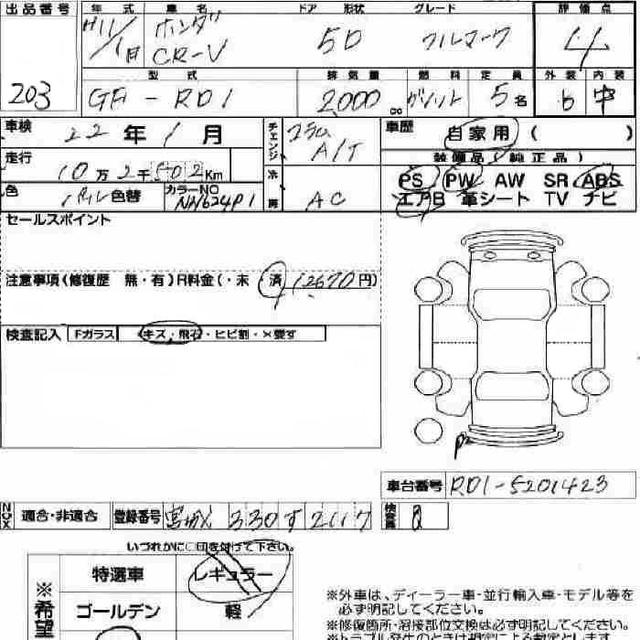 出品番号 年式 車名 ドア 形状 グレード 評価点
H11/1月 ホンダ CR-V 5D フルマーク 4
203
型式 排気量 燃料 定員 外装 内装
GF-RD1 2000cc ガソリン 5名 b 中
車検 22年1月 チェンジ コラム A/T 車歴 自家用( )
装備品(純正品)
走行 10万2千502Km 冷房 AC PS PW AW SR ABS
色 色替 カラーNO NH624P1 エアB 革シート TV ナビ
セールスポイント
注意事項(修復歴 無・有)R料金(・未 済 12670円)
検査記入 Fガラス キズ・飛石・ヒビ割・×要す
P2
車台番号 RD1-5201423
NOX 適合・非適合 登録番号 宮城 330す2117 検査員
いづれかに○印を付けて下さい。
※希望 特選車 レギュラー
ゴールデン 軽
※外車は、ディーラー車・並行輸入車・モデル等を
必ず明記してください。
※修復箇所・溶接部位交換は必ず明記してください。